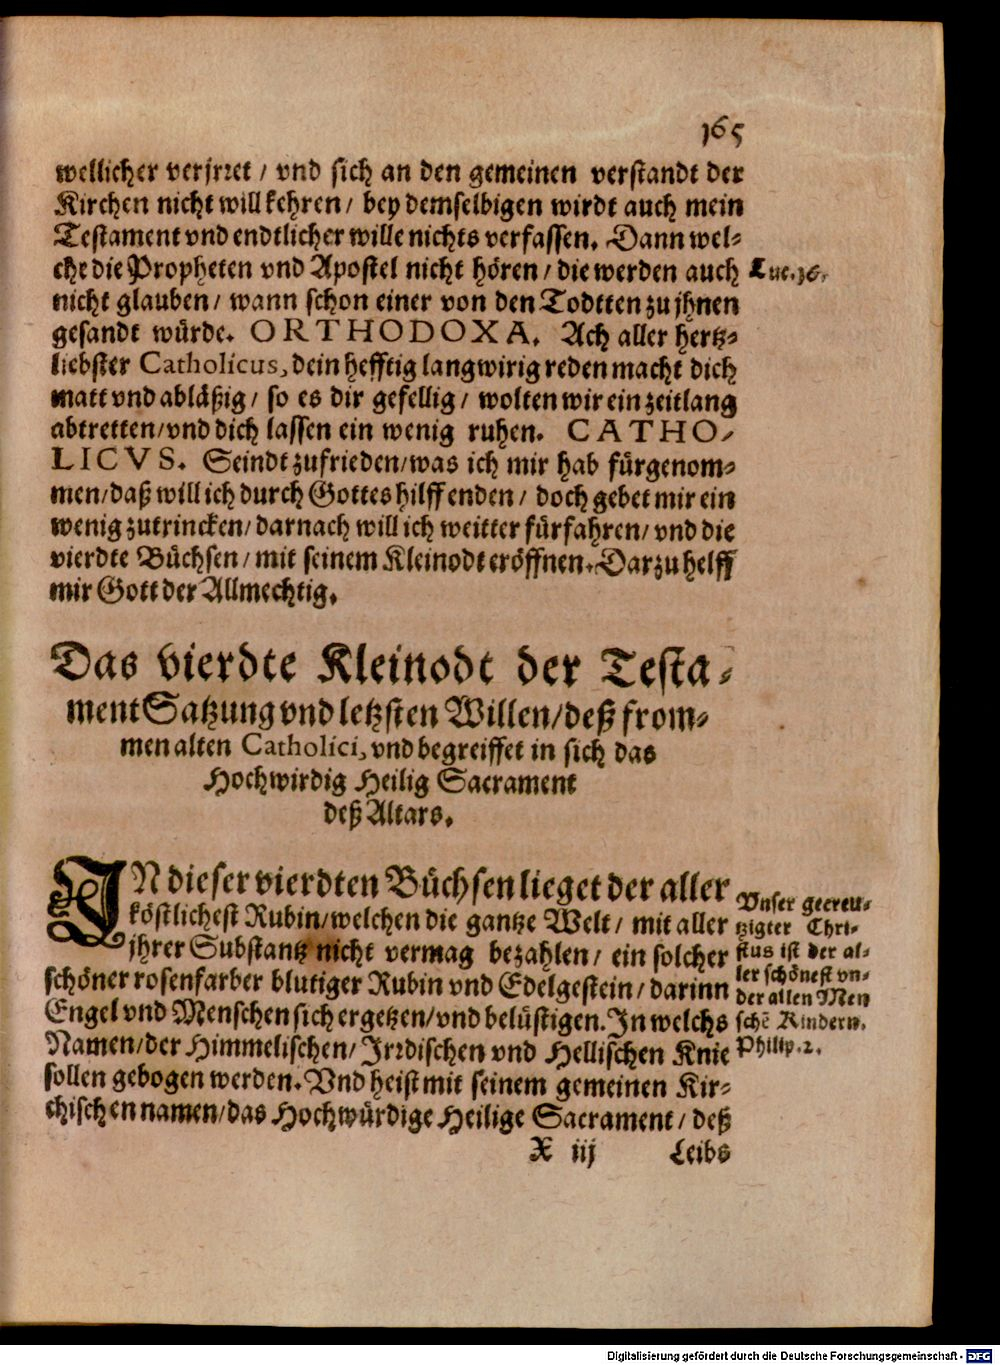 165
wellicher verjrret / vnd sich an den gemeinen verstandt der
Kirchen nicht will kehren / bey demselbigen wirdt auch mein
Testament vnd endtlicher wille nichts verfassen. Dann wel-
che die Propheten vnd Apostel nicht hören / die werden auch
Luc. 16.
nicht glauben / wann schon einer von den Todtten zu jhnen
gesandt würde. ORTHODOXA. Ach aller hertz-
liebster Catholicus, dein hefftig langwirig reden macht dich
matt vnd abläßig / so es dir gefellig / wolten wir ein zeitlang
abtretten / vnd dich lassen ein wenig ruhen. CATHO-
LICVS. Seindt zufrieden / was ich mir hab fürgenom-
men / daß will ich durch Gottes hilff enden / doch gebet mir ein
wenig zutrincken / darnach will ich weitter fürfahren / vnd die
vierdte Büchsen / mit seinem Kleinodt eröffnen. Darzu helff
mir Gott der Allmechtig.
Das vierdte Kleinodt der Testa-
ment Satzung vnd letzsten Willen / deß from-
men alten Catholici, vnd begreiffet in sich das
Hochwirdig Heilig Sacrament
deß Altars.
IN dieser vierdten Büchsen lieget der aller
köstlichest Rubin / welchen die gantze Welt / mit aller
jhrer Substantz nicht vermag bezahlen / ein solcher
schöner rosenfarber blutiger Rubin vnd Edelgestein / darinn
Engel vnd Menschen sich ergetzen / vnd belüstigen. In welchs
Namen / der Himmelischen / Irrdischen vnd Hellischen Knie
sollen gebogen werden. Vnd heist mit seinem gemeinen Kir-
chischen namen / das Hochwürdige Heilige Sacrament / deß
Vnser gecreu-
tzigter Chri-
stus ist der al-
ler schönest vn-
der allen Men
schē Kindern.
Philip. 2.
X iij
Leibs
Digitalisierung gefördert durch die Deutsche Forschungsgemeinschaft - DFG